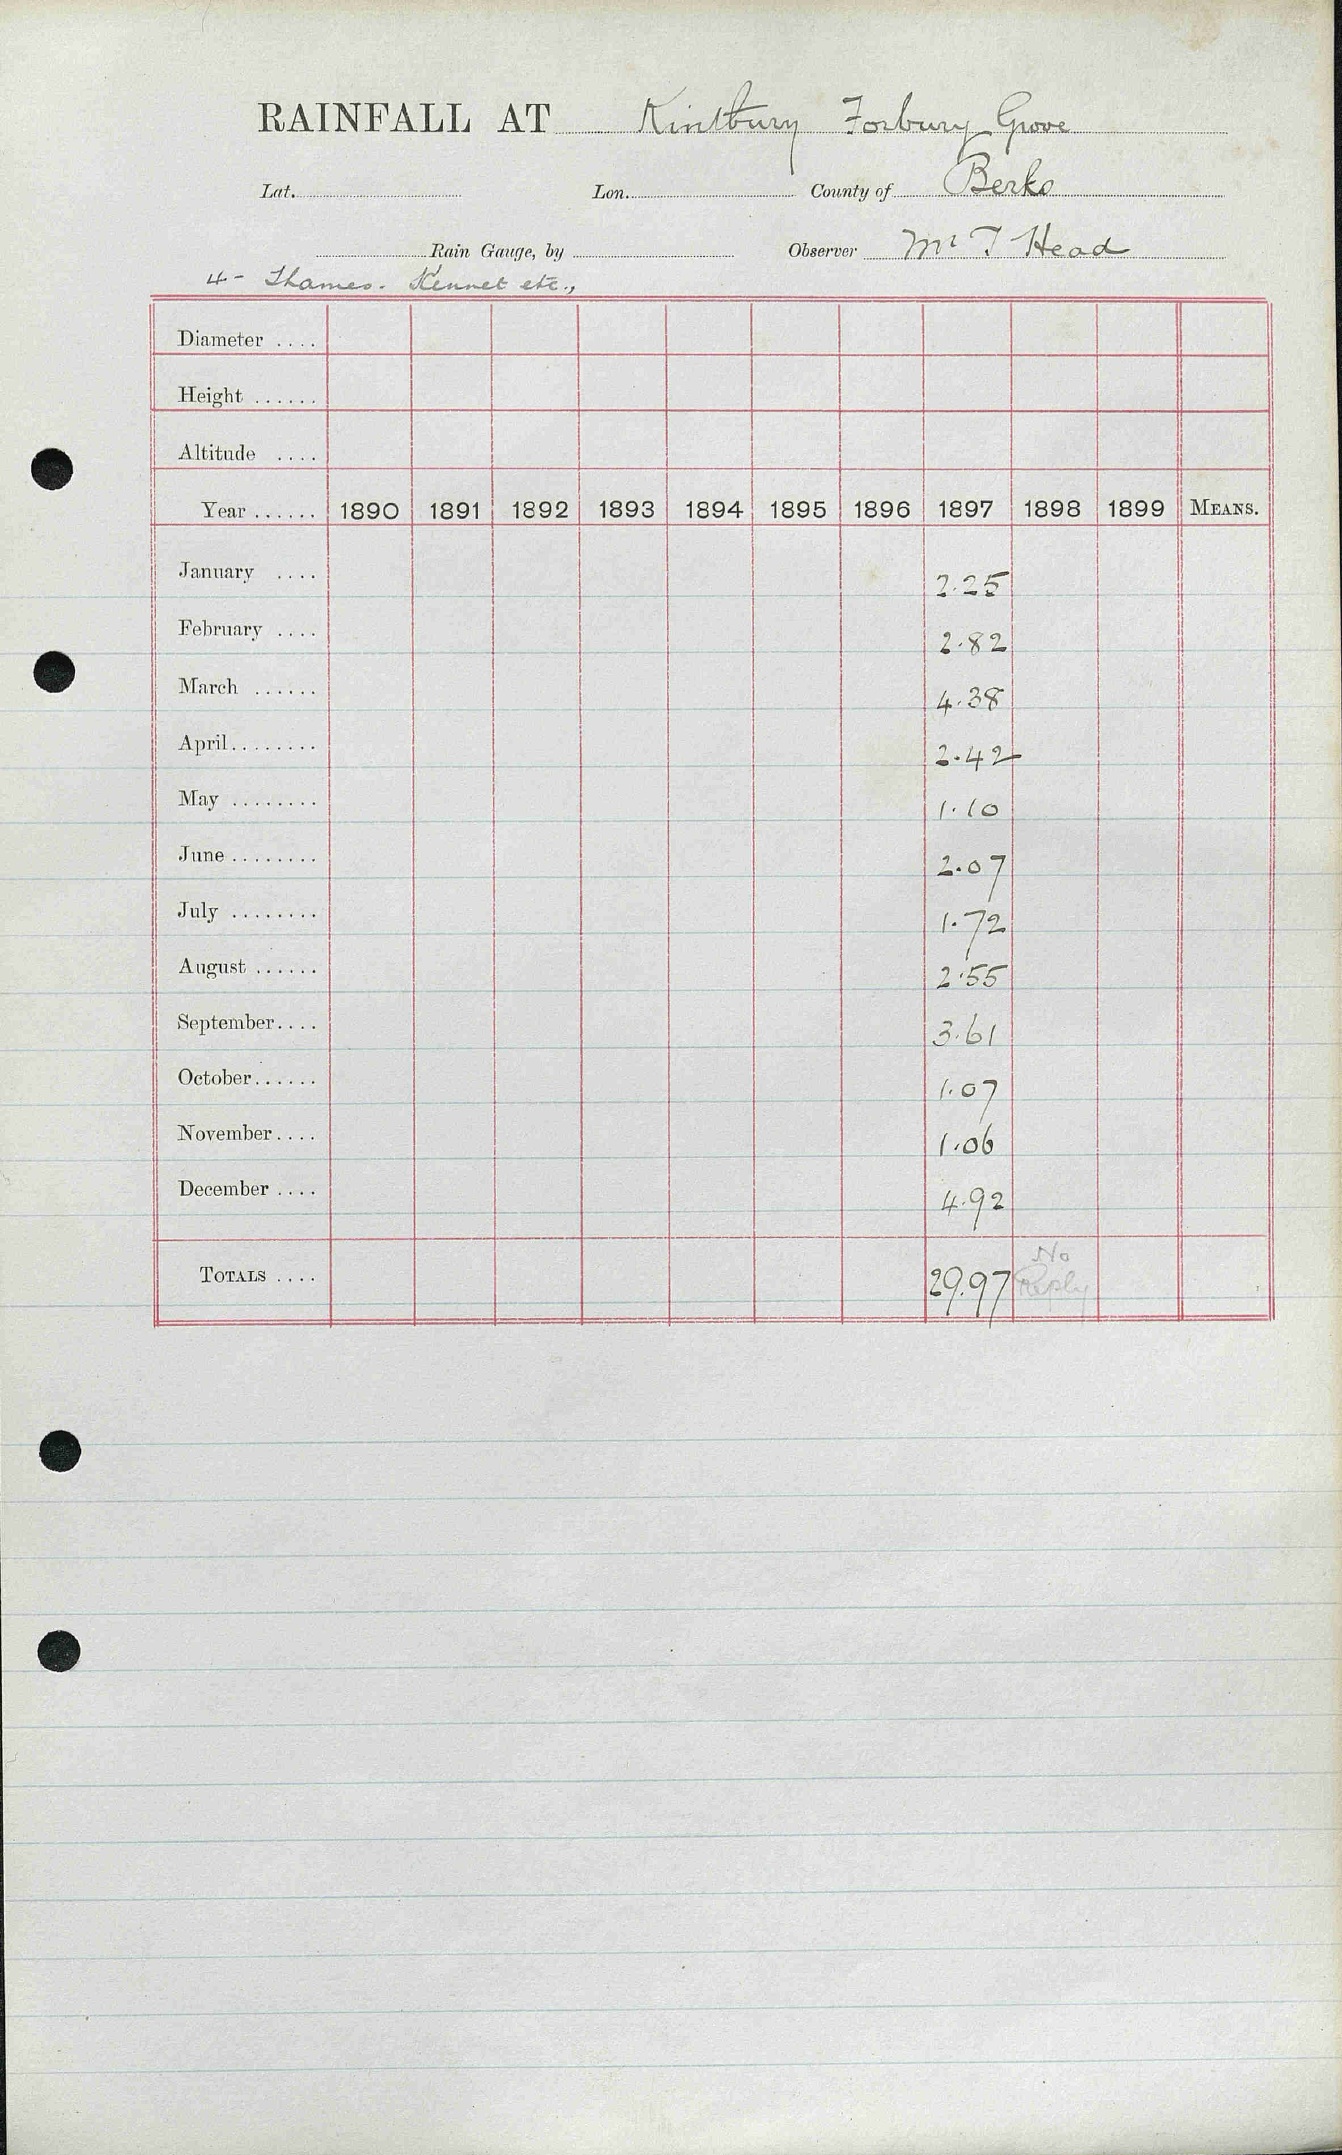 RAINFALL AT Kintbury Forbury Grove
Lat. Lon. County of Berks
Rain Gauge, by Observer Mr T Head
4 - Thames. Kennet etc.,
Diameter ....
Height ......
Altitude ....
Year ...... 1890 1891 1892 1893 1894 1895 1896 1897 1898 1899 MEANS.
January .... 2.25
February .... 2.82
March ...... 4.38
April ........ 2.42
May ........ 1.10
June ........ 2.07
July ........ 1.72
August ...... 2.55
September .... 3.61
October ...... 1.07
November .... 1.06
December .... 4.92
TOTALS .... 29.97 No Reply